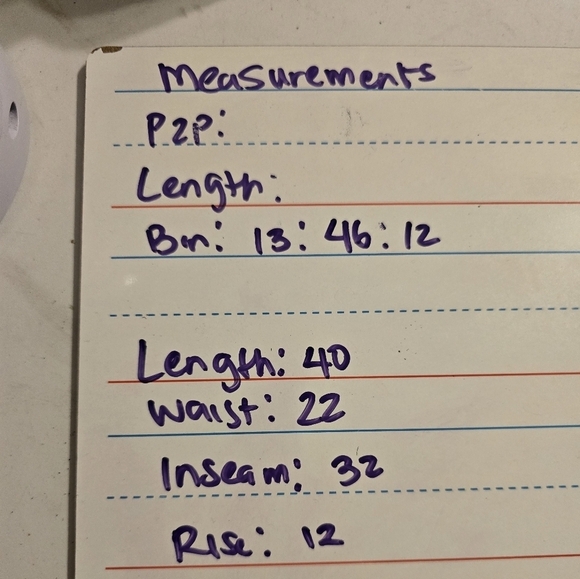 Measurements
P2P:
Length:
Bin: 13: 46: 12
Length: 40
Waist: 22
Inseam: 32
Rise: 12